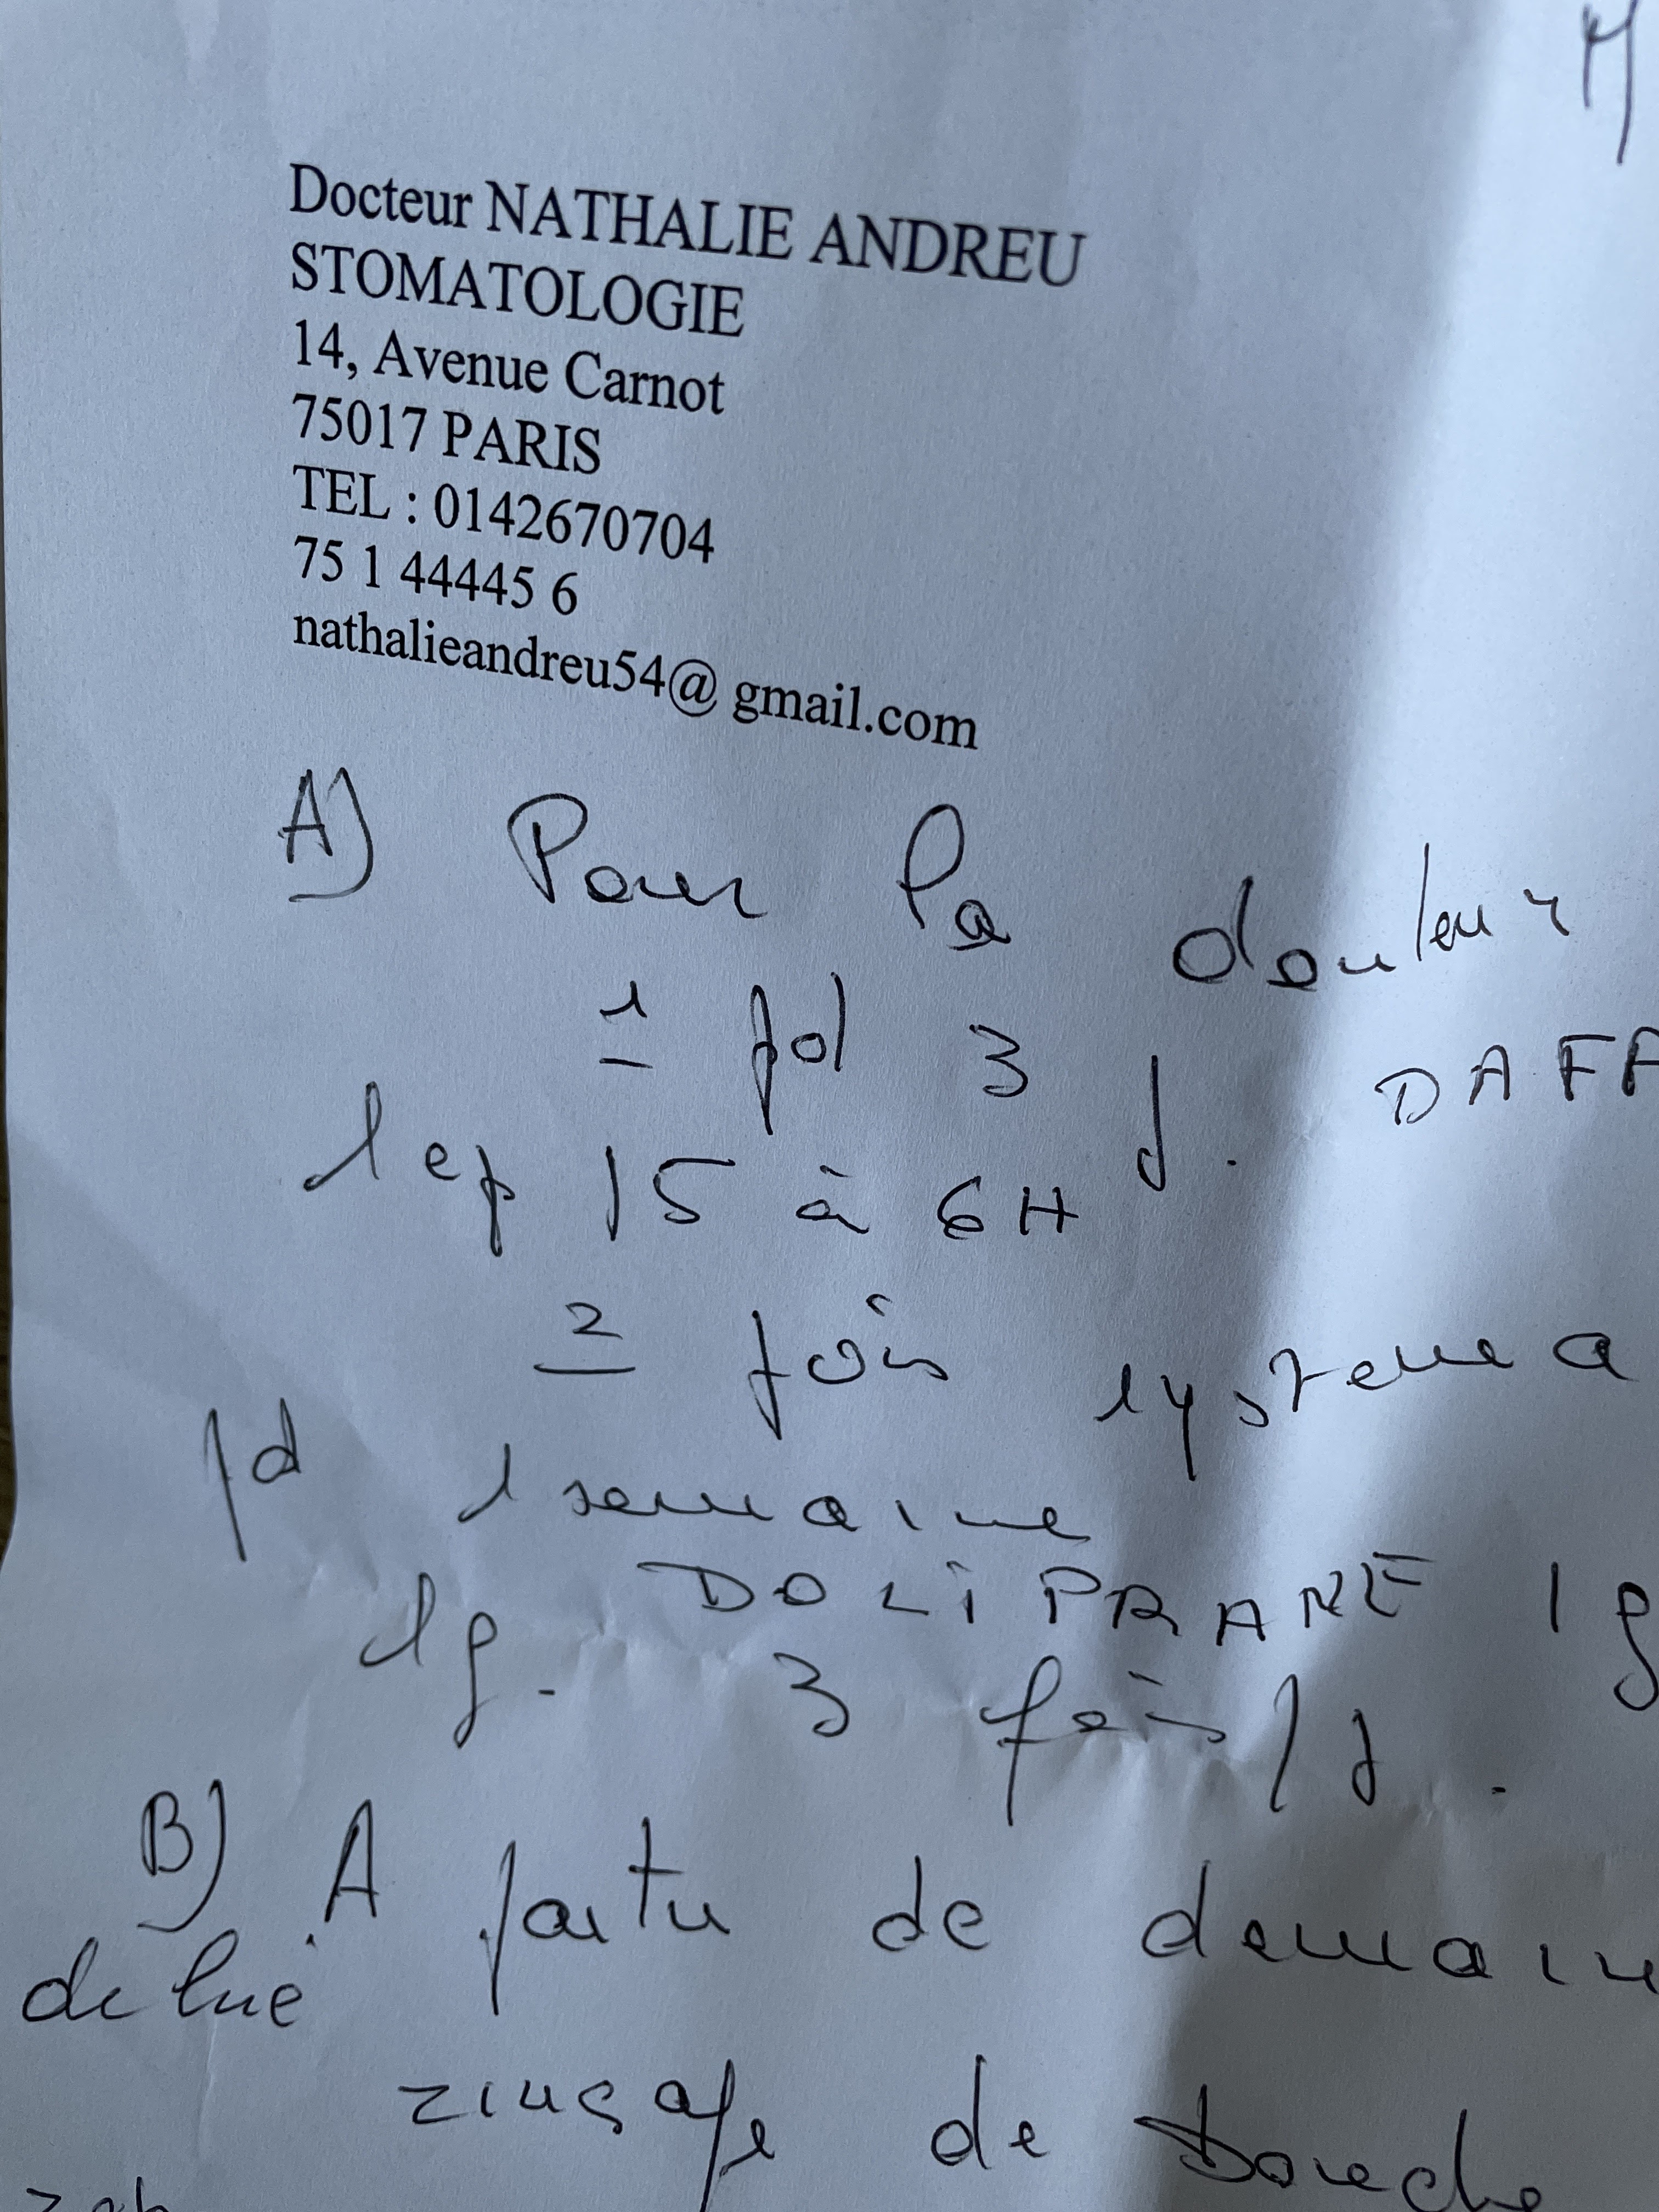 M
Docteur NATHALIE ANDREU
STOMATOLOGIE
14, Avenue Carnot
75017 PARIS
TEL : 0142670704
75 1 44445 6
nathalieandreu54@ gmail.com
A) Pour la douleur
1 pd 3 j. DAFA
les 15 à 6H
2 fois systema
pd 1 semaine
DOLIPRANE 1g
1g. 3 fois/j.
B) A partir de demain
dilué
rinçage de Bouche